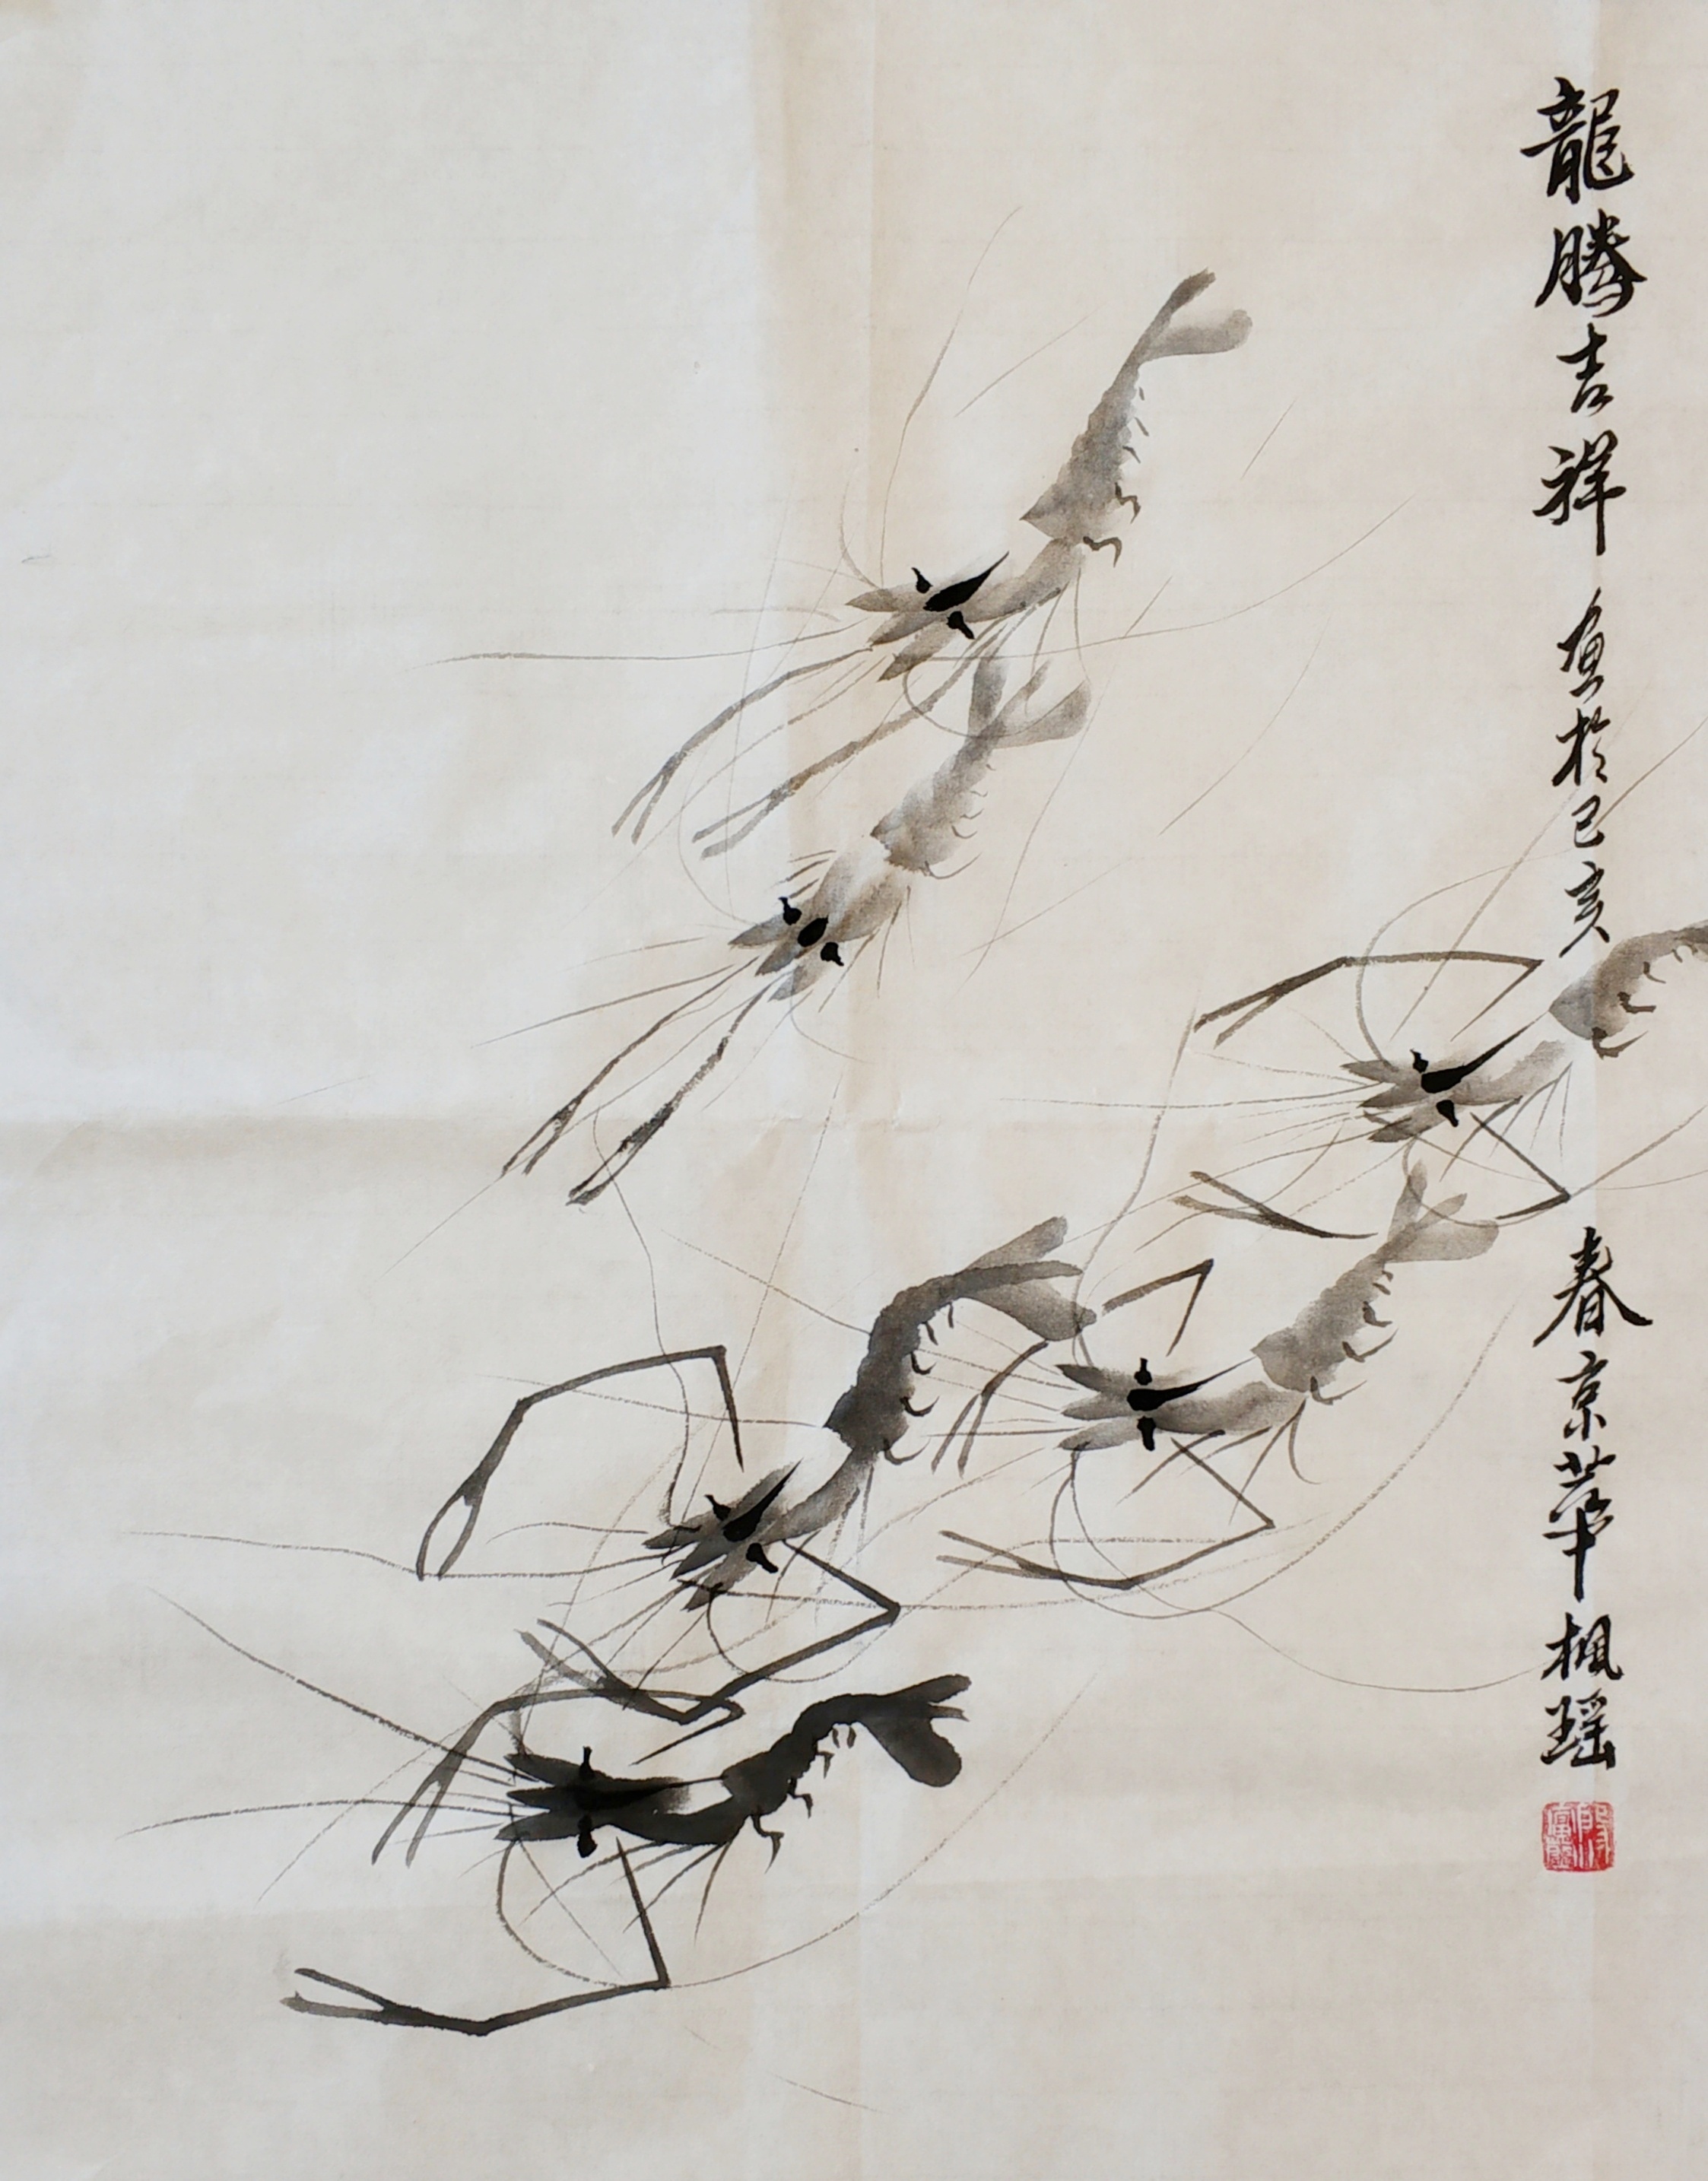 龍騰吉祥 畫於己亥
春京華楓瑤